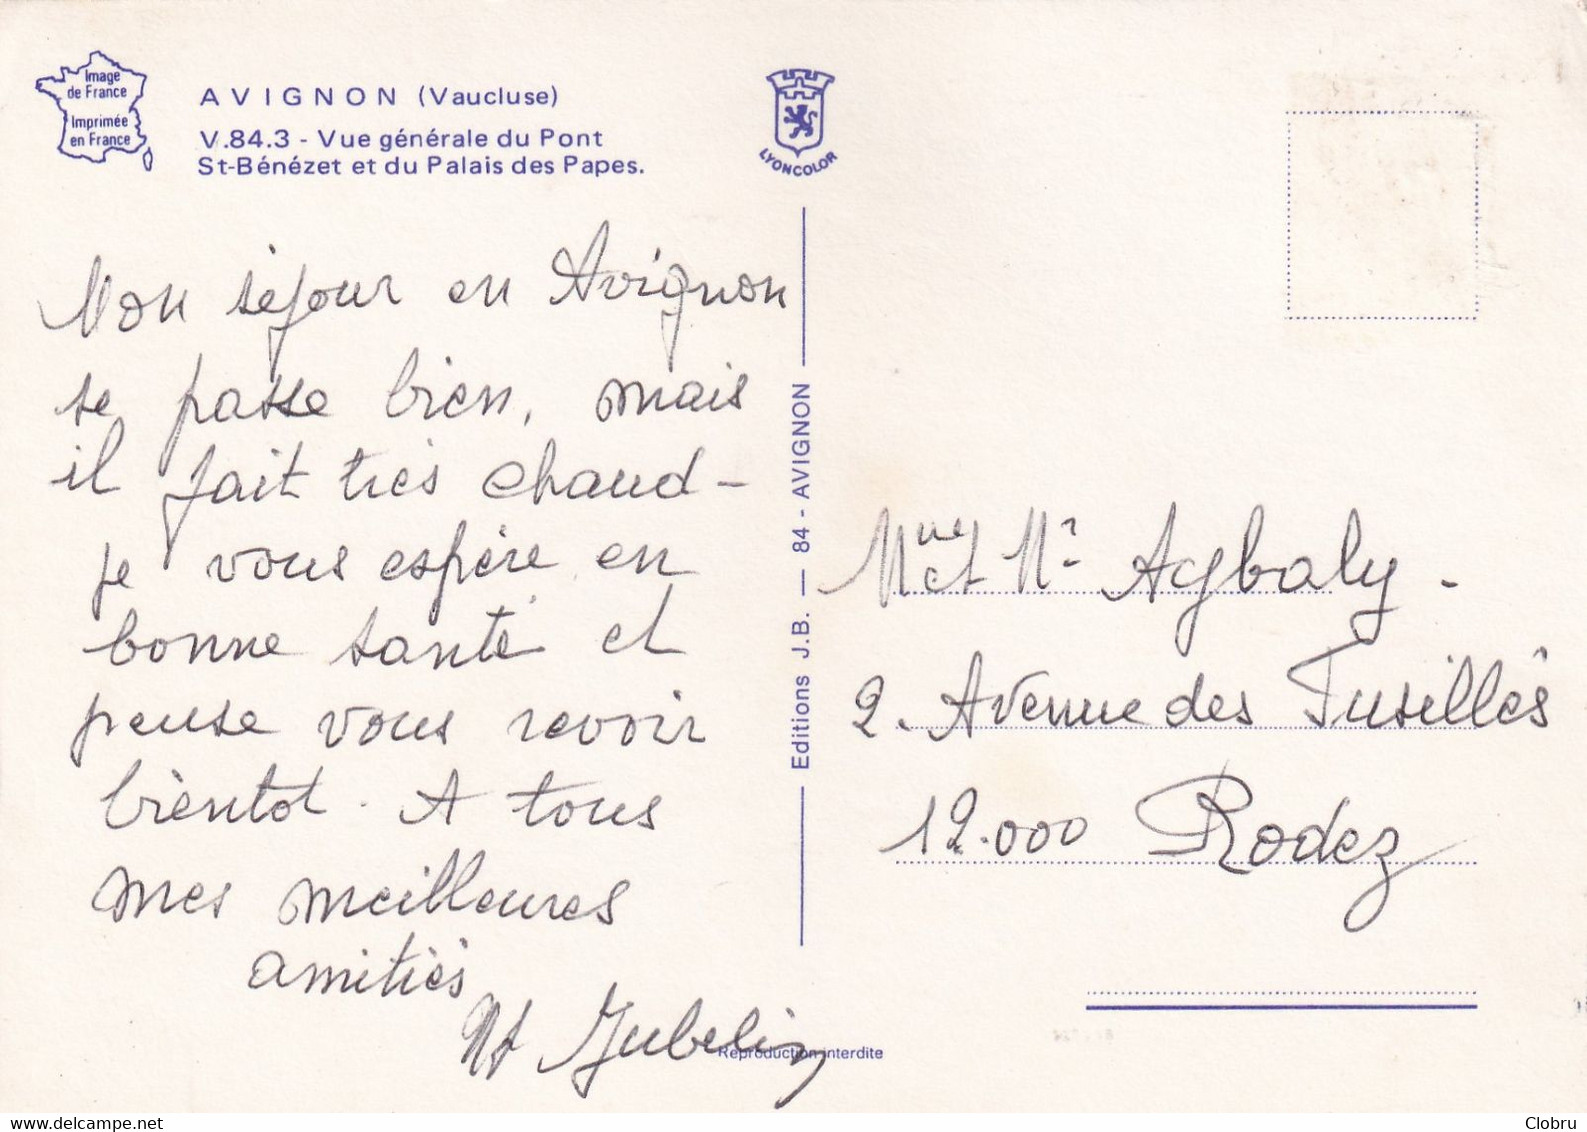 Image
de France
Imprimée
en France
AVIGNON (Vaucluse)
V.84.3 - Vue générale du Pont
St-Bénézet et du Palais des Papes.
LYONCOLOR
Mon séjour en Avignon
se passe bien, mais
il fait très chaud -
je vous espère en
bonne santé et
pense vous revoir
bientot. A tous
mes meilleures
amitiés
Jubelin
Editions J.B. — 84 - AVIGNON
Reproduction interdite
Mme et Mr Agbaly -
2. Avenue des Fusillés
12.000 Rodez
delcampe.net
Clobru